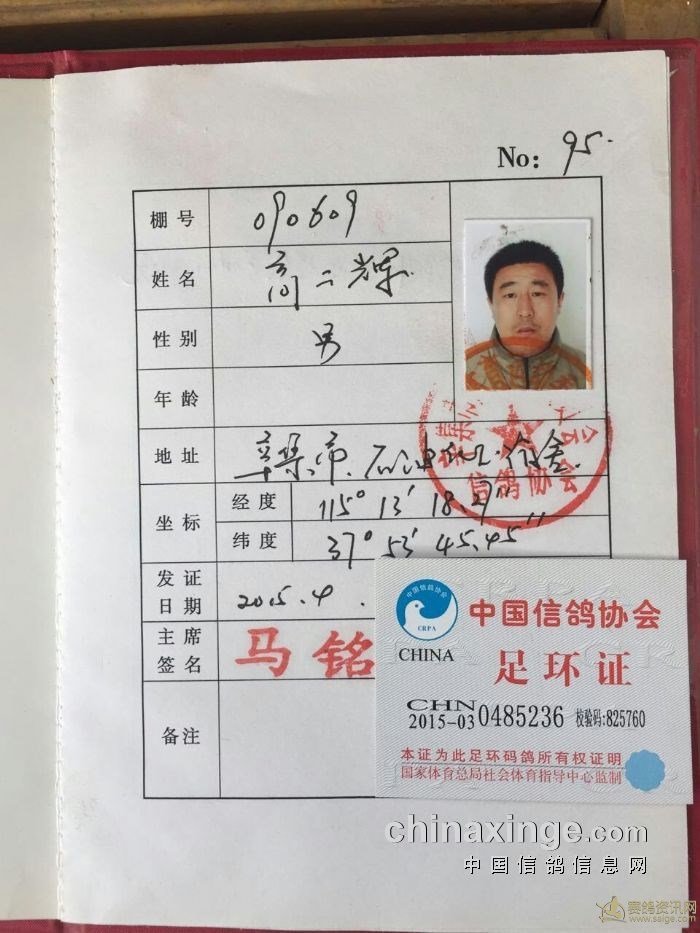 No: 95.
棚号 090609
姓名 高二辉
性别 男
年龄
地址 辛集市石油化工宿舍
坐标 经度 115° 13′ 18.27″
纬度 37° 53′ 45.45″
发证日期 2015.4.
主席签名 马铭
备注
信鸽协会
中国信鸽协会
CRPA
CHINA
中国信鸽协会
足环证
CHN
2015-03 0485236 校验码:825760
本证为此足环码鸽所有权证明
国家体育总局社会体育指导中心监制
chinaxinge.com
中国信鸽信息网
赛鸽资讯网
www.saige.com